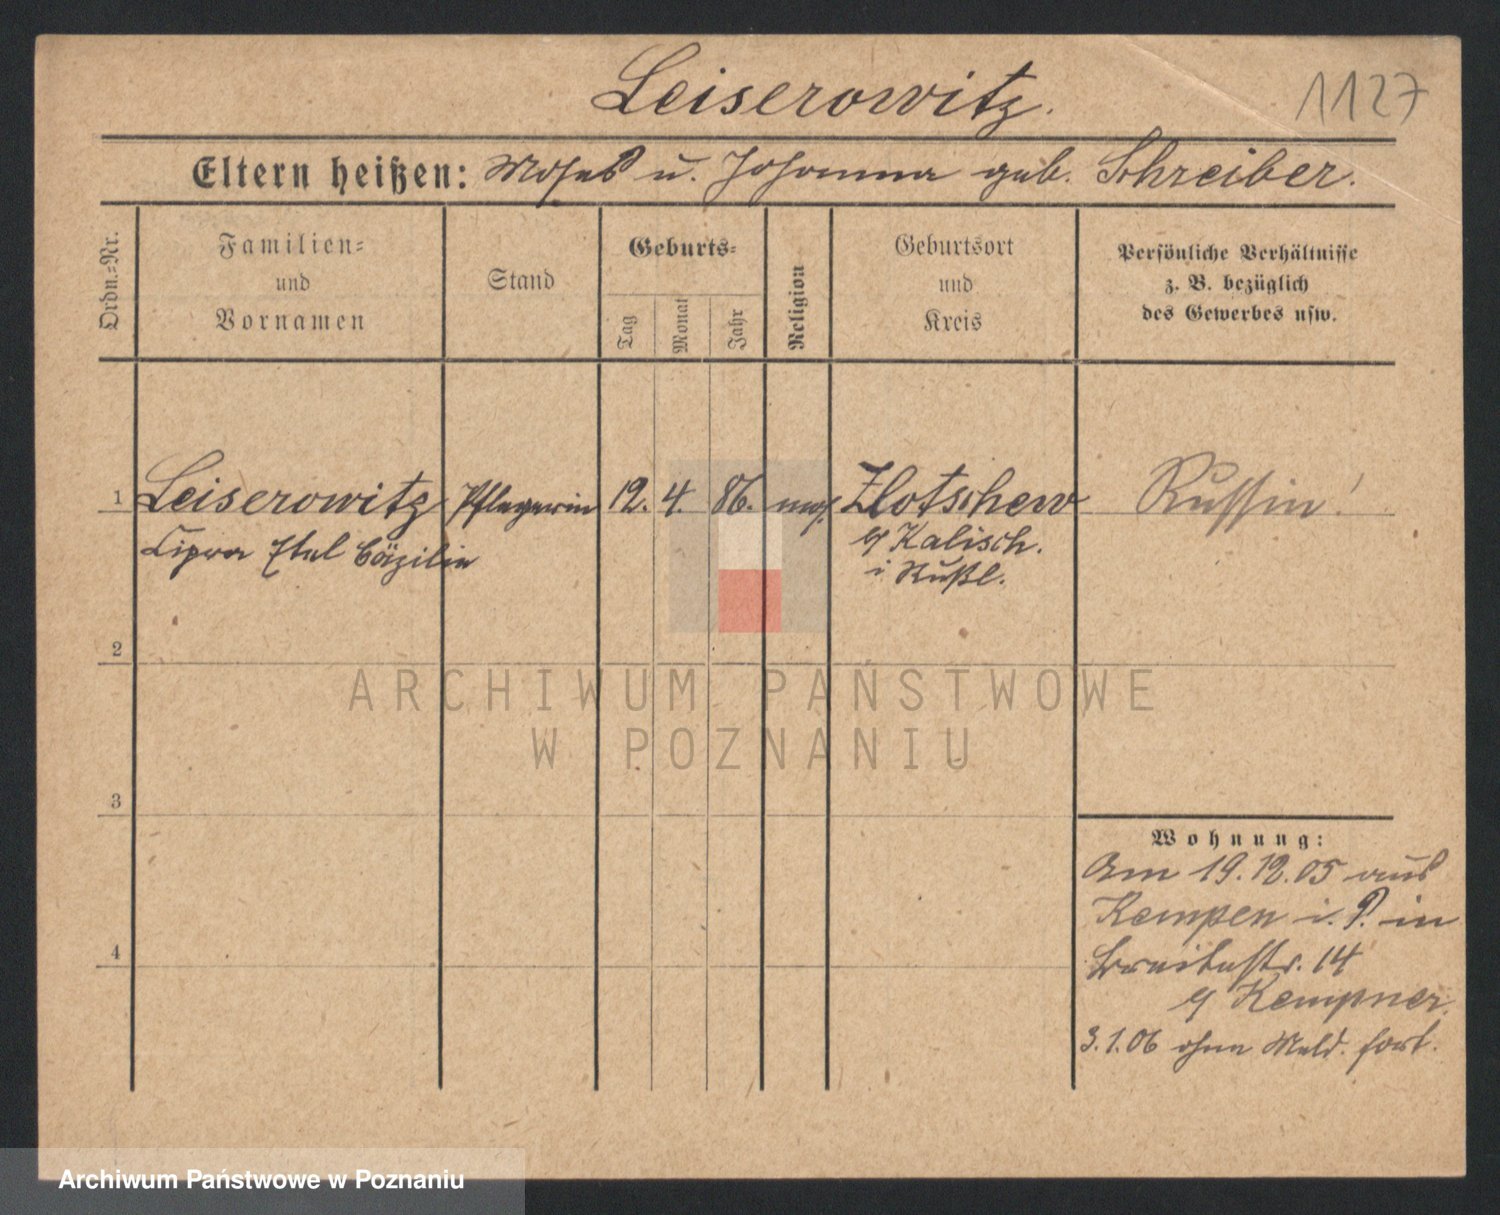 Leiserowitz.
1127
Eltern heißen: Moses u. Johanna geb. Schreiber.
Ordn.=Nr.
Familien=
und
Vornamen
Stand
Geburts=
Tag
Monat
Jahr
Religion
Geburtsort
und
Kreis
Persönliche Verhältnisse
z. B. bezüglich
des Gewerbes usw.
1 Leiserowitz Pflegerin 12. 4. 86. mos. Zlotschew Russin!
Etel Cäzilie
b/ Kalisch.
i Rußl.
2
3
4
Wohnung:
Am 19.12.05 aus
Kempen i. P. in
Breitestr. 14
b/ Kempner.
3.1.06 ohne Meld. fort.
ARCHIWUM PAŃSTWOWE
W POZNANIU
Archiwum Państwowe w Poznaniu